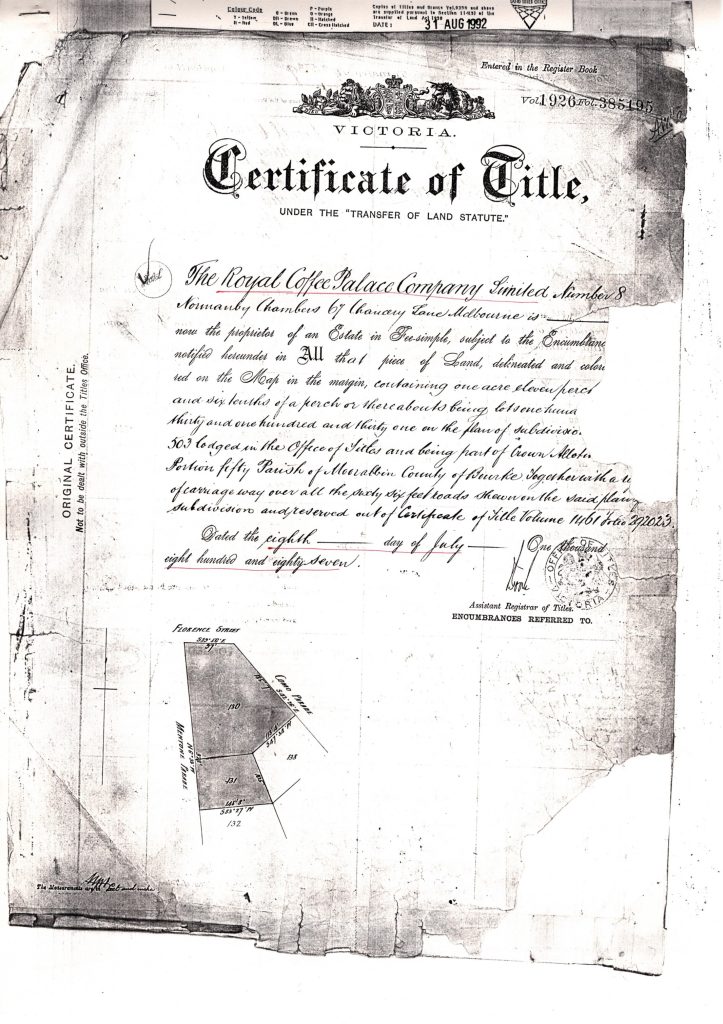 Colour Code
Y - Yellow
R - Red
G - Green
BR - Brown
BL - Blue
P - Purple
O - Orange
H - Hatched
CH - Cross Hatched
Copies of Titles and
are supplied pursuant to Section
Transfer of Land Act
DATE: 31 AUG 1992
Entered in the Register Book
Vol. 1926 Fol. 385195
VICTORIA.
Certificate of Title,
UNDER THE "TRANSFER OF LAND STATUTE."
The Royal Coffee Palace Company Limited Number 8
Normanby Chambers 67 Chancery Lane Melbourne is
now the proprietor of an Estate in Fee-simple, subject to the Encumbran
notified hereunder in All that piece of Land, delineated and colou
red on the Map in the margin, containing one acre eleven perch
and six tenths of a perch or thereabouts being lots one hund
thirty and one hundred and thirty one on the plan of subdivision
503 lodged in the Office of Titles and being part of Crown Allot
Portion fifty Parish of Moorabbin County of Bourke Together with a
of carriage way over all the sixty six feet roads shewn on the said plan
subdivision and reserved out of Certificate of Title Volume 1461 Folio 292023
Dated the eighth day of July One thousand
eight hundred and eighty seven.
OFFICE OF TITLES
VICTORIA
Assistant Registrar of Titles.
ENCUMBRANCES REFERRED TO.
ORIGINAL CERTIFICATE.
Not to be dealt with outside the Titles Office.
FLORENCE STREET
COMO PARADE
MENTONE PARADE
130
131
133
132
The Measurements are in feet and inches